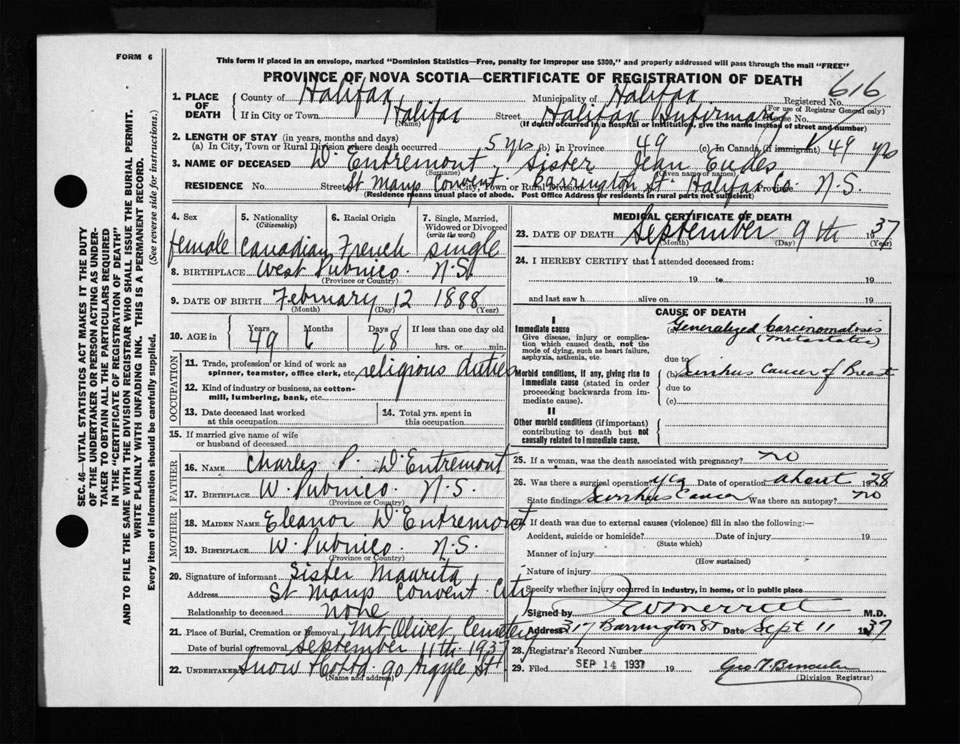 FORM 6
This form if placed in an envelope, marked "Dominion Statistics—Free, penalty for improper use $300," and properly addressed will pass through the mail "FREE"
PROVINCE OF NOVA SCOTIA—CERTIFICATE OF REGISTRATION OF DEATH
616
1. PLACE OF DEATH County of Halifax Municipality of Halifax Registered No.
(For use of Registrar General only)
If in City or Town Halifax (Name) Street Halifax Infirmary House No.
(If death occurred in a hospital or institution, give the name instead of street and number)
2. LENGTH OF STAY (in years, months and days)
(a) In City, Town or Rural Division where death occurred 5 yrs (b) In Province 49 (c) In Canada (if immigrant) 49 yrs
3. NAME OF DECEASED D'Entremont, Sister Jean Eudes
(Surname) (Given name or names)
RESIDENCE No. Street St Marys Convent. City, Town or Rural Division Barrington St Halifax Co. Province N.S.
(Residence means usual place of abode. Post Office Address for residents in rural parts not sufficient)
4. Sex female
5. Nationality (Citizenship) Canadian
6. Racial Origin French
7. Single, Married, Widowed or Divorced (write the word) single
8. BIRTHPLACE West Pubnico. N.S.
(Province or Country)
9. DATE OF BIRTH February 12 1888
(Month) (Day) (Year)
10. AGE in Years 49 Months 6 Days 28 If less than one day old hrs. or min.
OCCUPATION
11. Trade, profession or kind of work as spinner, teamster, office clerk, etc. religious duties
12. Kind of industry or business, as cotton-mill, lumbering, bank, etc.
13. Date deceased last worked at this occupation
14. Total yrs. spent in this occupation
15. If married give name of wife or husband of deceased
FATHER
16. NAME Charles P. D'Entremont
17. BIRTHPLACE W. Pubnico. N.S.
(Province or Country)
MOTHER
18. MAIDEN NAME Eleanor D'Entremont
19. BIRTHPLACE W. Pubnico N.S.
(Province or Country)
20. Signature of informant Sister Maurita
Address St Marys Convent. City
Relationship to deceased None
21. Place of Burial, Cremation or Removal Mt Olivet Cemetery
Date of burial or removal September 11th 1937
22. UNDERTAKER Snow & Co 90 Argyle St
(Name and address)
MEDICAL CERTIFICATE OF DEATH
23. DATE OF DEATH September 9th 1937
(Month) (Day) (Year)
24. I HEREBY CERTIFY that I attended deceased from:
19 to 19
and last saw h alive on 19
CAUSE OF DEATH
I
Immediate cause
Give disease, injury or complication which caused death, not the mode of dying, such as heart failure, asphyxia, asthenia, etc.
Generalized Carcinomatosis
(metastates)
due to
Morbid conditions, if any, giving rise to immediate cause (stated in order proceeding backwards from immediate cause).
(b) Scirrhus Cancer of Breast
due to
(c)
II
Other morbid conditions (if important) contributing to death but not causally related to immediate cause.
25. If a woman, was the death associated with pregnancy? no
26. Was there a surgical operation? yes Date of operation about 1928
State findings Scirrhus Cancer Was there an autopsy? no
27. If death was due to external causes (violence) fill in also the following:—
Accident, suicide or homicide? Date of injury 19
(State which)
Manner of injury
(How sustained)
Nature of injury
Specify whether injury occurred in industry, in home, or in public place
Signed by Merritt M.D.
Address 317 Barrington St Date Sept 11 1937
28. Registrar's Record Number
29. Filed SEP 14 1937 19
(Division Registrar)
SEC. 46—VITAL STATISTICS ACT MAKES IT THE DUTY
OF THE UNDERTAKER OR PERSON ACTING AS UNDER-
TAKER TO OBTAIN ALL THE PARTICULARS REQUIRED
IN THE "CERTIFICATE OF REGISTRATION OF DEATH"
AND TO FILE THE SAME WITH THE DIVISION REGISTRAR WHO SHALL ISSUE THE BURIAL PERMIT.
WRITE PLAINLY WITH UNFADING INK. THIS IS A PERMANENT RECORD.
Every item of information should be carefully supplied. (See reverse side for instructions.)